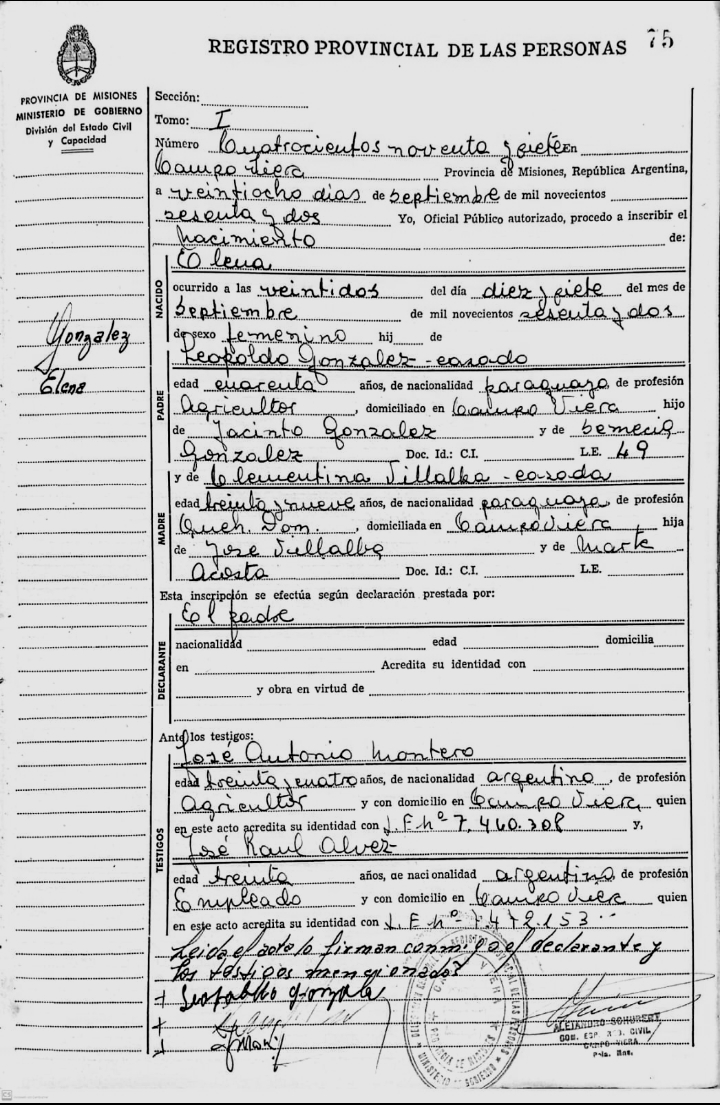 REGISTRO PROVINCIAL DE LAS PERSONAS 75
PROVINCIA DE MISIONES
MINISTERIO DE GOBIERNO
División del Estado Civil
y Capacidad
Gonzalez
Elena
Sección:
Tomo: I
Número Cuatrocientos noventa y siete En
Campo Viera Provincia de Misiones, República Argentina,
a veintiocho dias de septiembre de mil novecientos
sesenta y dos Yo, Oficial Público autorizado, procedo a inscribir el
nacimiento de:
NACIDO
Elena
ocurrido a las veintidos del día diez y siete del mes de
septiembre de mil novecientos sesenta y dos
de sexo femenino hij de
Leopoldo Gonzalez - casado
PADRE
edad cuarenta años, de nacionalidad paraguaya, de profesión
Agricultor, domiciliado en Campo Viera hijo
de Jacinto Gonzalez y de
Gonzalez Doc. Id.: C.I. L.E. 49
y de Clementina Villalba - casada
MADRE
edad treinta y nueve años, de nacionalidad paraguaya, de profesión
Queh. Dom., domiciliada en Campo Viera, hija
de Jose Villalba y de
Acosta Doc. Id.: C.I. L.E.
Esta inscripción se efectúa según declaración prestada por:
El padre
DECLARANTE
nacionalidad edad domicilia
en Acredita su identidad con
y obra en virtud de
Ante los testigos:
José Antonio Montero
TESTIGOS
edad treinta y cuatro años, de nacionalidad argentino, de profesión
Agricultor y con domicilio en Campo Viera, quien
en este acto acredita su identidad con L.E nº 7.460.308 y,
José Raul Alvez
edad treinta años, de nacionalidad argentina de profesión
Empleado y con domicilio en Campo Viera quien
en este acto acredita su identidad con L.E nº 7472.153
Leida el acta lo firman conmigo el declarante y
los testigos mencionados
+ Leopoldo Gonzale
+
+
ALEJANDRO SCHUBERT
CIVIL
CAMPO VIERA
Mns.